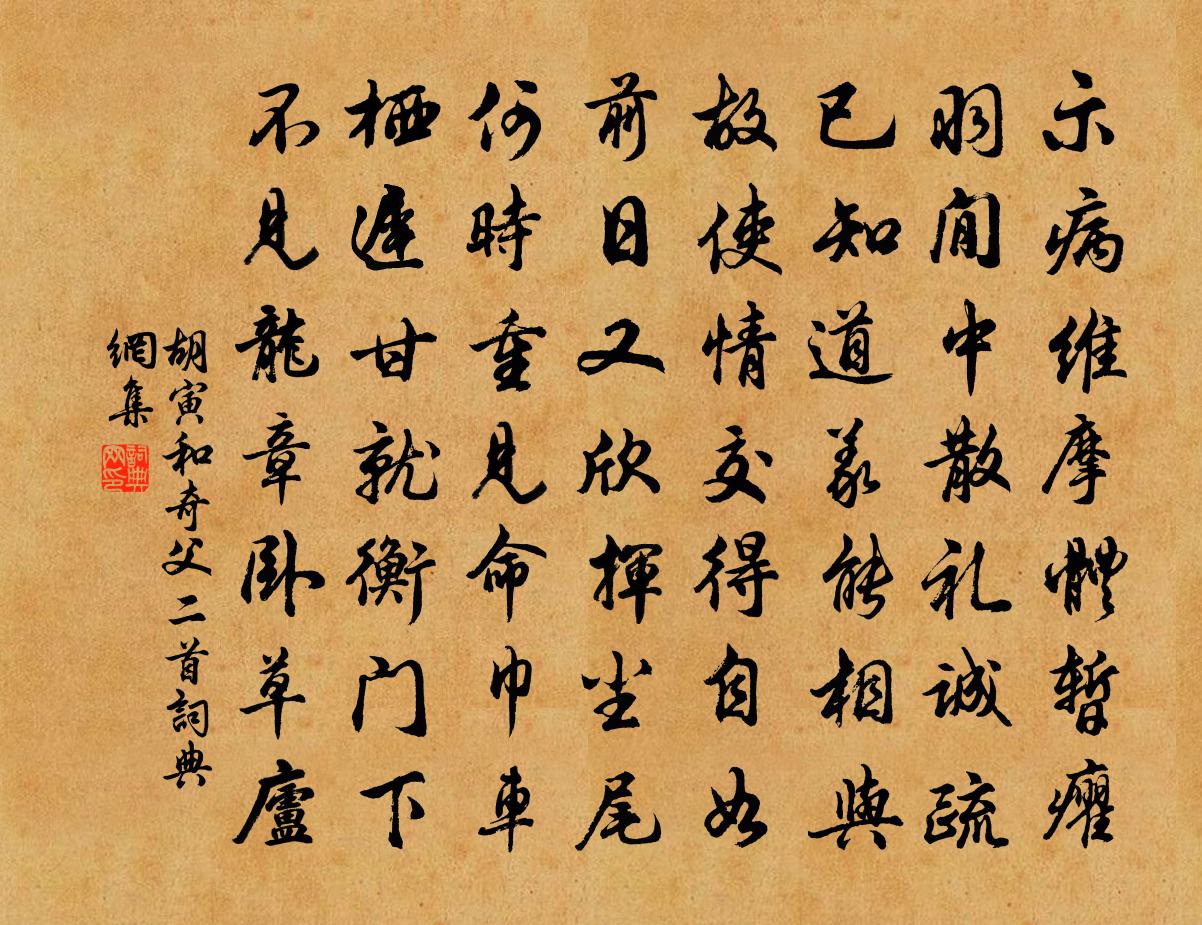 示病維摩體暫癯
朙閒中散礼誠疏
已知道義能相與
故使情交得自如
前日又欣揮坐尾
何時重見命巾車
栖遲甘就衡门下
不見龍章卧草廬
胡寅和奇父二首詞典
網集
詞典網印